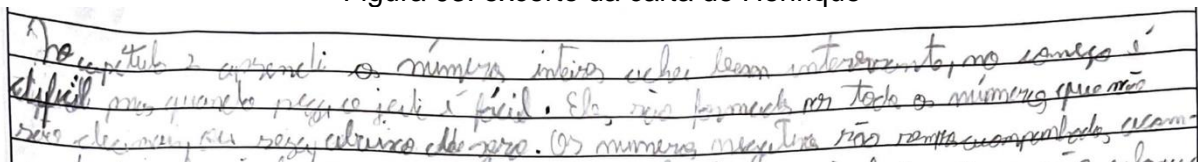 Figura 33: excerto da carta de Henrique
No capitulo 2 aprendi os números inteiros achei bem interessante, no começo é
dificil mas quando pega o jeito é fácil. Eles são formados por todo os números que não
são decimais, ou seja, abaixo de zero. Os numeros negativos são sempre acompanhados, acom-